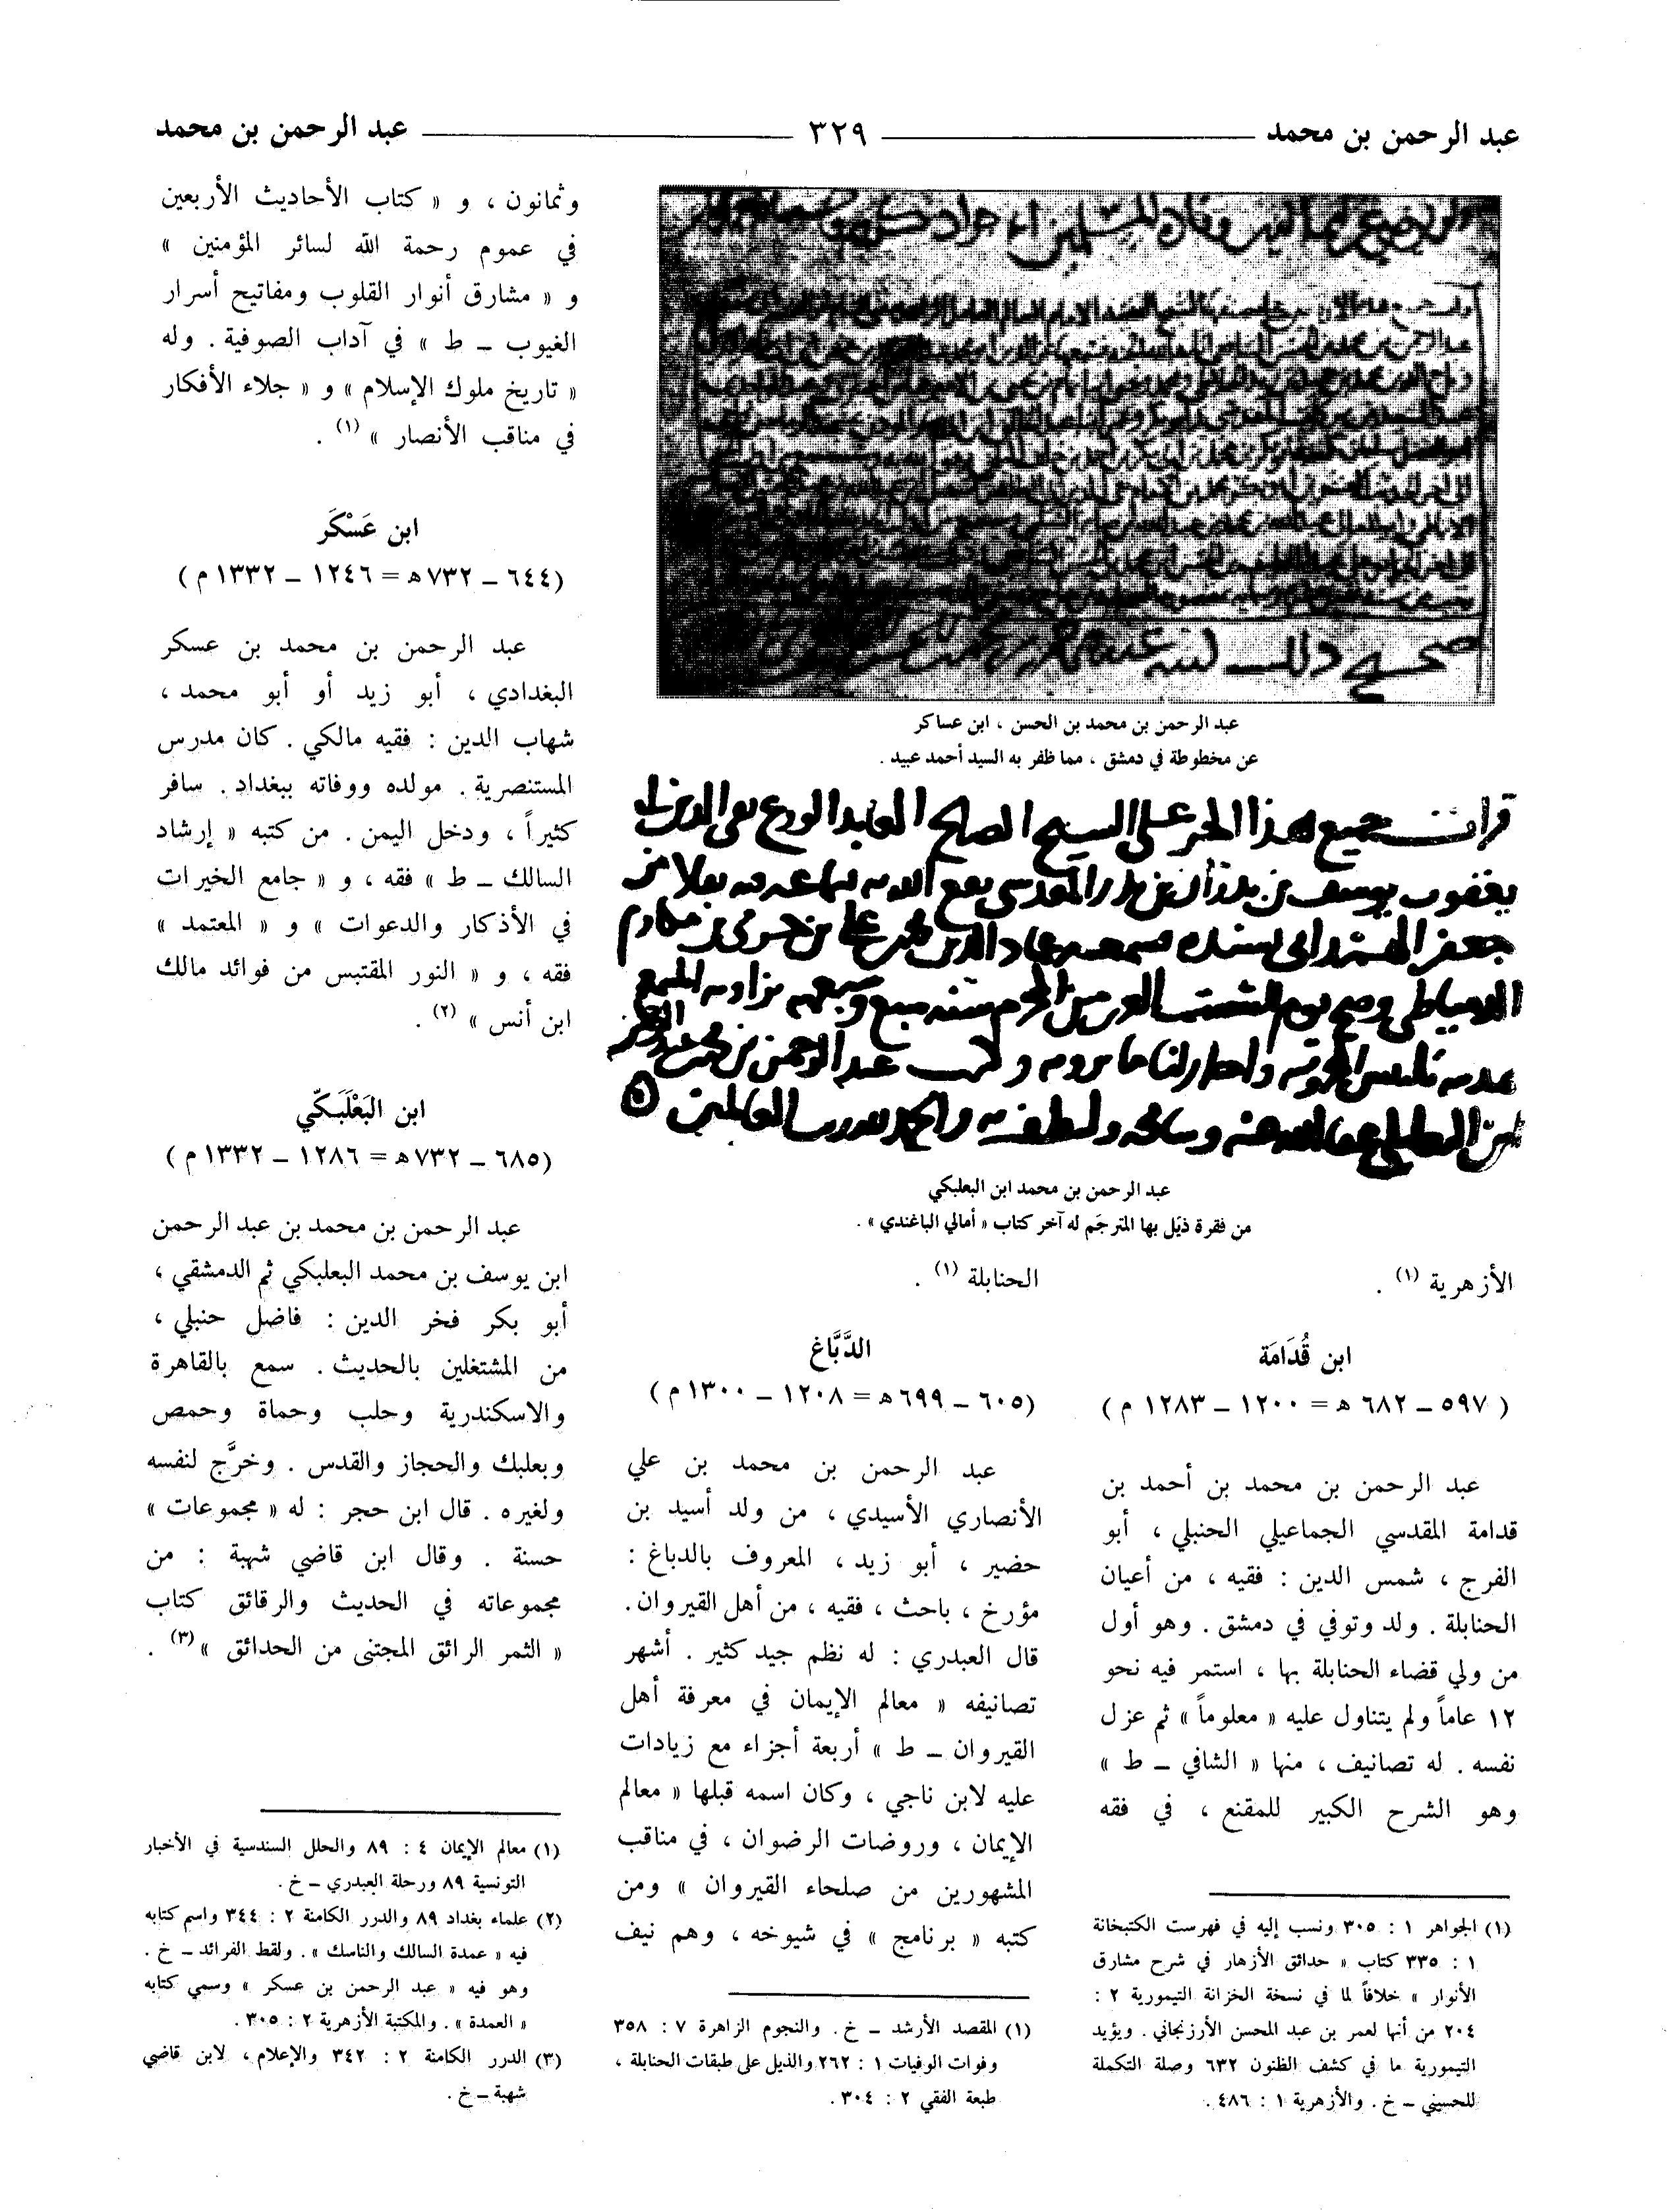 عبد الرحمن بن محمد
٣٢٩
عبد الرحمن بن محمد
عبد الرحمن بن محمد بن الحسن ، ابن عساكر
عن مخطوطة في دمشق ، مما ظفر به السيد أحمد عبيد .
عبد الرحمن بن محمد ابن البعلبكي
من فقرة ذيّل بها المترجَم له آخر كتاب « أمالي الباغندي » .
الأزهرية (١) .
ابن قُدَامَة
( ٥٩٧ ــ ٦٨٢ ه = ١٢٠٠ ــ ١٢٨٣ م )
عبد الرحمن بن محمد بن أحمد بن
قدامة المقدسي الجماعيلي الحنبلي ، أبو
الفرج ، شمس الدين : فقيه ، من أعيان
الحنابلة . ولد وتوفي في دمشق . وهو أول
من ولي قضاء الحنابلة بها ، استمر فيه نحو
١٢ عاماً ولم يتناول عليه « معلوماً » ثم عزل
نفسه . له تصانيف ، منها « الشافي ــ ط »
وهو الشرح الكبير للمقنع ، في فقه
(١) الجواهر ١ : ٣٠٥ ونسب إليه في فهرست الكتبخانة
١ : ٣٣٥ كتاب « حدائق الأزهار في شرح مشارق
الأنوار » خلافاً لما في نسخة الخزانة التيمورية ٢ :
٢٠٤ من أنها لعمر بن عبد المحسن الأرزنجاني . ويؤيد
التيمورية ما في كشف الظنون ٦٣٢ وصلة التكملة
للحسيني ــ خ . والأزهرية ١ : ٤٨٦ .
الحنابلة (١) .
الدَّبَّاغ
(٦٠٥ ــ ٦٩٩ه = ١٢٠٨ ــ ١٣٠٠ م )
عبد الرحمن بن محمد بن علي
الأنصاري الأسيدي ، من ولد أسيد بن
حضير ، أبو زيد ، المعروف بالدباغ :
مؤرخ ، باحث ، فقيه ، من أهل القيروان .
قال العبدري : له نظم جيد كثير . أشهر
تصانيفه « معالم الإيمان في معرفة أهل
القيروان ــ ط » أربعة أجزاء مع زيادات
عليه لابن ناجي ، وكان اسمه قبلها « معالم
الإيمان ، وروضات الرضوان ، في مناقب
المشهورين من صلحاء القيروان » ومن
كتبه « برنامج » في شيوخه ، وهم نيف
(١) المقصد الأرشد ــ خ . والنجوم الزاهرة ٧ : ٣٥٨
وفوات الوفيات ١ : ٢٦٢ والذيل على طبقات الحنابلة ،
طبعة الفقي ٢ : ٣٠٤ .
وثمانون ، و « كتاب الأحاديث الأربعين
في عموم رحمة الله لسائر المؤمنين »
و « مشارق أنوار القلوب ومفاتيح أسرار
الغيوب ــ ط » في آداب الصوفية . وله
« تاريخ ملوك الإسلام » و « جلاء الأفكار
في مناقب الأنصار » (١) .
ابن عَسْكَر
(٦٤٤ ــ ٧٣٢ه = ١٢٤٦ ــ ١٣٣٢ م )
عبد الرحمن بن محمد بن عسكر
البغدادي ، أبو زيد أو أبو محمد ،
شهاب الدين : فقيه مالكي . كان مدرس
المستنصرية . مولده ووفاته ببغداد . سافر
كثيراً ، ودخل اليمن . من كتبه « إرشاد
السالك ــ ط » فقه ، و « جامع الخيرات
في الأذكار والدعوات » و « المعتمد »
فقه ، و « النور المقتبس من فوائد مالك
ابن أنس » (٢) .
ابن البَعْلَبَكّي
(٦٨٥ ــ ٧٣٢ه = ١٢٨٦ ــ ١٣٣٢ م )
عبد الرحمن بن محمد بن عبد الرحمن
ابن يوسف بن محمد البعلبكي ثم الدمشقي ،
أبو بكر فخر الدين : فاضل حنبلي ،
من المشتغلين بالحديث . سمع بالقاهرة
والاسكندرية وحلب وحماة وحمص
وبعلبك والحجاز والقدس . وخرَّج لنفسه
ولغيره . قال ابن حجر : له « مجموعات »
حسنة . وقال ابن قاضي شهبة : من
مجموعاته في الحديث والرقائق كتاب
« الثمر الرائق المجتنى من الحدائق » (٣) .
(١) معالم الإيمان ٤ : ٨٩ والحلل السندسية في الأخبار
التونسية ٨٩ ورحلة العبدري ــ خ .
(٢) علماء بغداد ٨٩ والدرر الكامنة ٢ : ٣٤٤ واسم كتابه
فيه « عمدة السالك والناسك » . ولقط الفرائد ــ خ .
وهو فيه « عبد الرحمن بن عسكر » وسمي كتابه
« العمدة » . والمكتبة الأزهرية ٢ : ٣٠٥ .
(٣) الدرر الكامنة ٢ : ٣٤٢ والإعلام ، لابن قاضي
شهبة ــ خ .